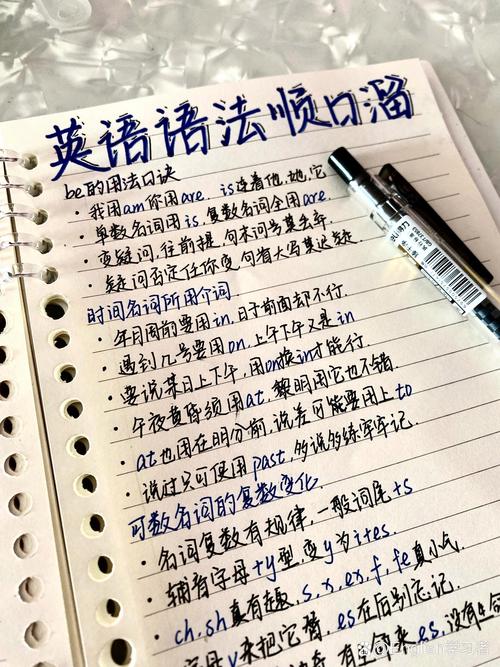 英语语法顺口溜
be的用法口诀
· 我用am你用are, is连着他,她,它
· 单数名词用is,复数名词全用are.
· 变疑问,往前提,句末问号莫丢弃
· 疑问否定任你变,句首大写莫迟疑.
时间名词所用介词
· 年月周前要用in,日子前面却不行.
· 遇到几号要用on,上午下午又是in
· 要说某日上下午,用on换in才能行.
· 午夜黄昏须用at,黎明用它也不错.
· at也用在明分前,说差可能要用上to
· 说过只可使用past,多说多练牢牢记.
可数名词的复数变化
· 名词复数有规律,一般词尾+s
· 辅音字母+y型,变y为i+es.
· ch,sh真有趣, s, x, ex, f, fe真小气.
字母v来把它替, es在后别忘记.
有些部来es,没有
@English学习者